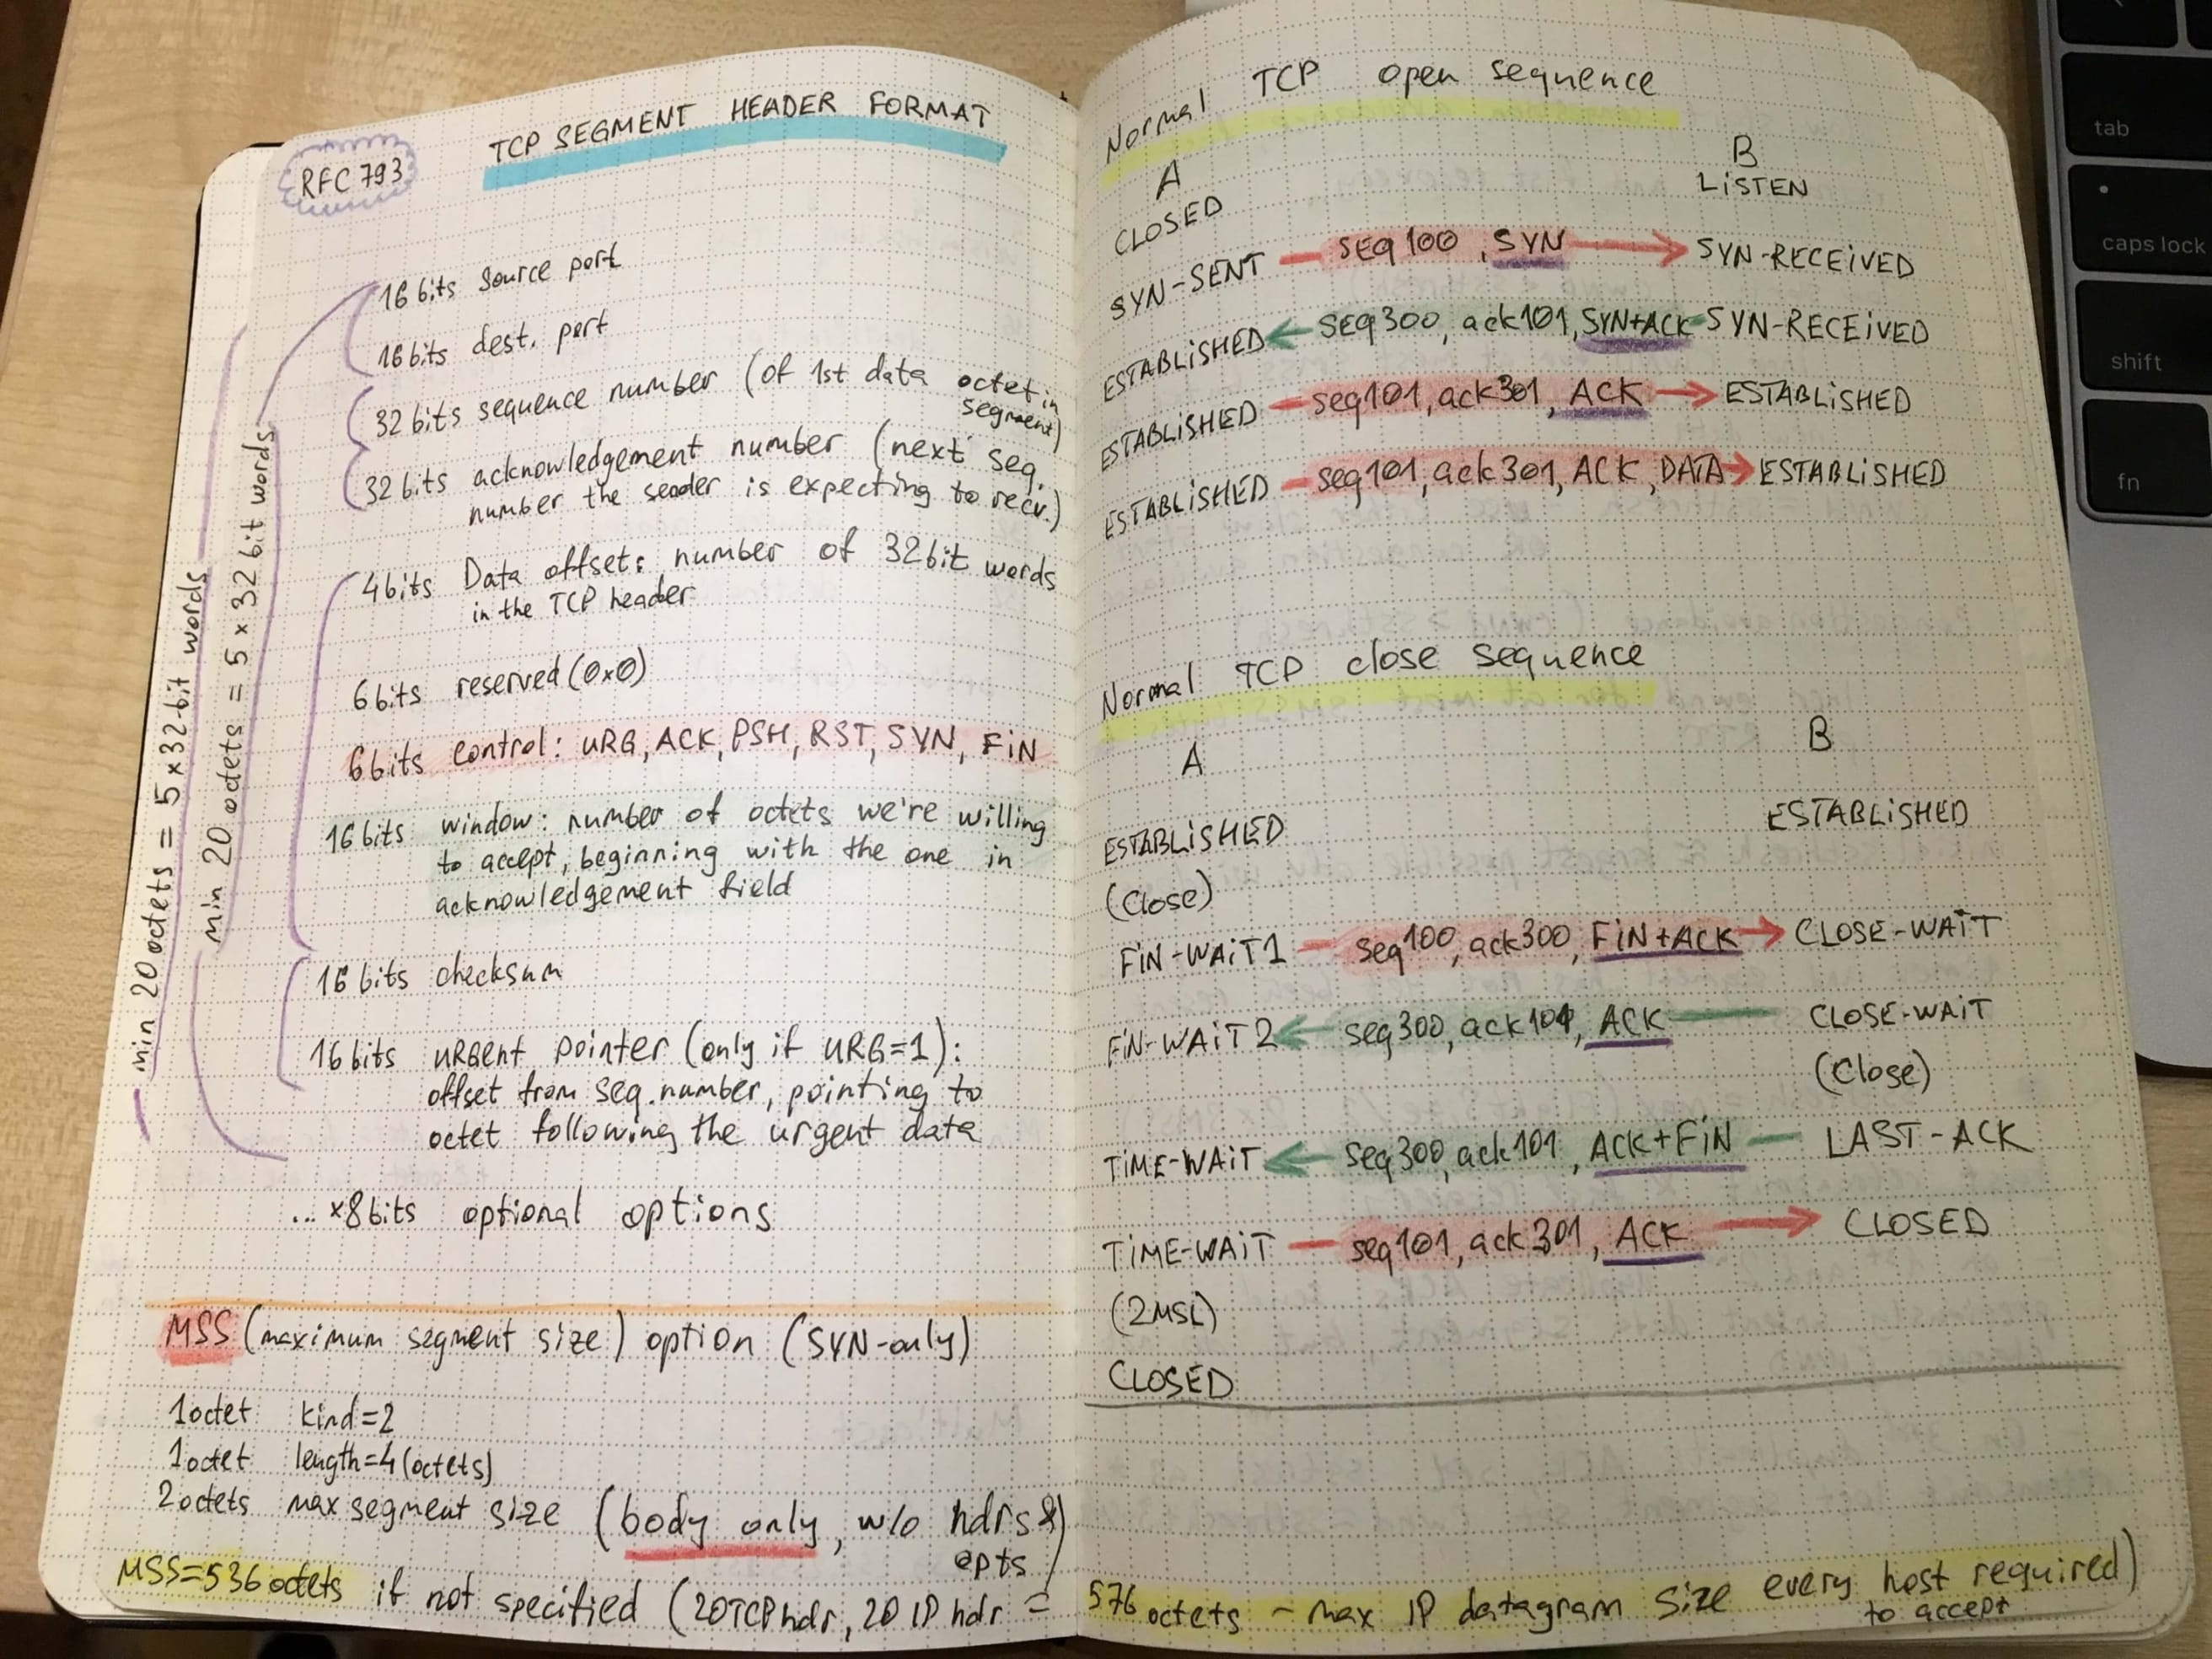 RFC 793
TCP SEGMENT HEADER FORMAT
16 bits source port
16 bits dest. port
32 bits sequence number (of 1st data octet in
segment)
32 bits acknowledgement number (next seq.
number the sender is expecting to recv.)
4 bits Data offset: number of 32bit words
in the TCP header
6 bits reserved (0x0)
6 bits control: URG, ACK, PSH, RST, SYN, FIN
16 bits window: number of octets we're willing
to accept, beginning with the one in
acknowledgement field
16 bits checksum
16 bits URGent pointer (only if URG=1):
offset from seq. number, pointing to
octet following the urgent data
... x8bits optional options
min 20 octets = 5 x 32-bit words
min 20 octets = 5 x 32 bit words
MSS (maximum segment size) option (SYN-only)
1octet kind=2
1octet length=4 (octets)
2octets max segment size (body only, w/o hdrs &
opts)
MSS=536 octets if not specified (20TCP hdr, 20 IP hdr =
Normal TCP open sequence
A B
CLOSED LISTEN
SYN-SENT seq100, SYN SYN-RECEIVED
ESTABLISHED seq300, ack101, SYN+ACK SYN-RECEIVED
ESTABLISHED seq101, ack301, ACK ESTABLISHED
ESTABLISHED seq101, ack301, ACK, DATA ESTABLISHED
Normal TCP close sequence
A B
ESTABLISHED ESTABLISHED
(Close)
FIN-WAIT1 seq100, ack300, FIN+ACK CLOSE-WAIT
FIN-WAIT2 seq300, ack101, ACK CLOSE-WAIT
(Close)
TIME-WAIT seq300, ack101, ACK+FIN LAST-ACK
TIME-WAIT seq101, ack301, ACK CLOSED
(2MSL)
CLOSED
576 octets - max IP datagram size every host required)
to accept
tab
caps lock
shift
fn